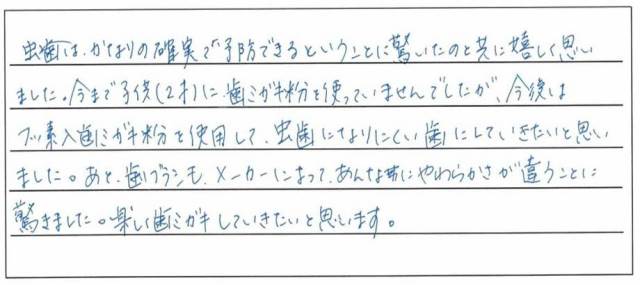 虫歯は、かなりの確実で予防できるということに驚いたのと共に嬉しく思い
ました。今まで子供(2才)に歯ミガキ粉を使っていませんでしたが、今後は
フッ素入歯ミガキ粉を使用して、虫歯になりにくい歯にしていきたいと思い
ました。あと、歯ブラシも、メーカーによって、あんな事にやわらかさが違うことに
驚きました。楽しく歯ミガキしていきたいと思います。